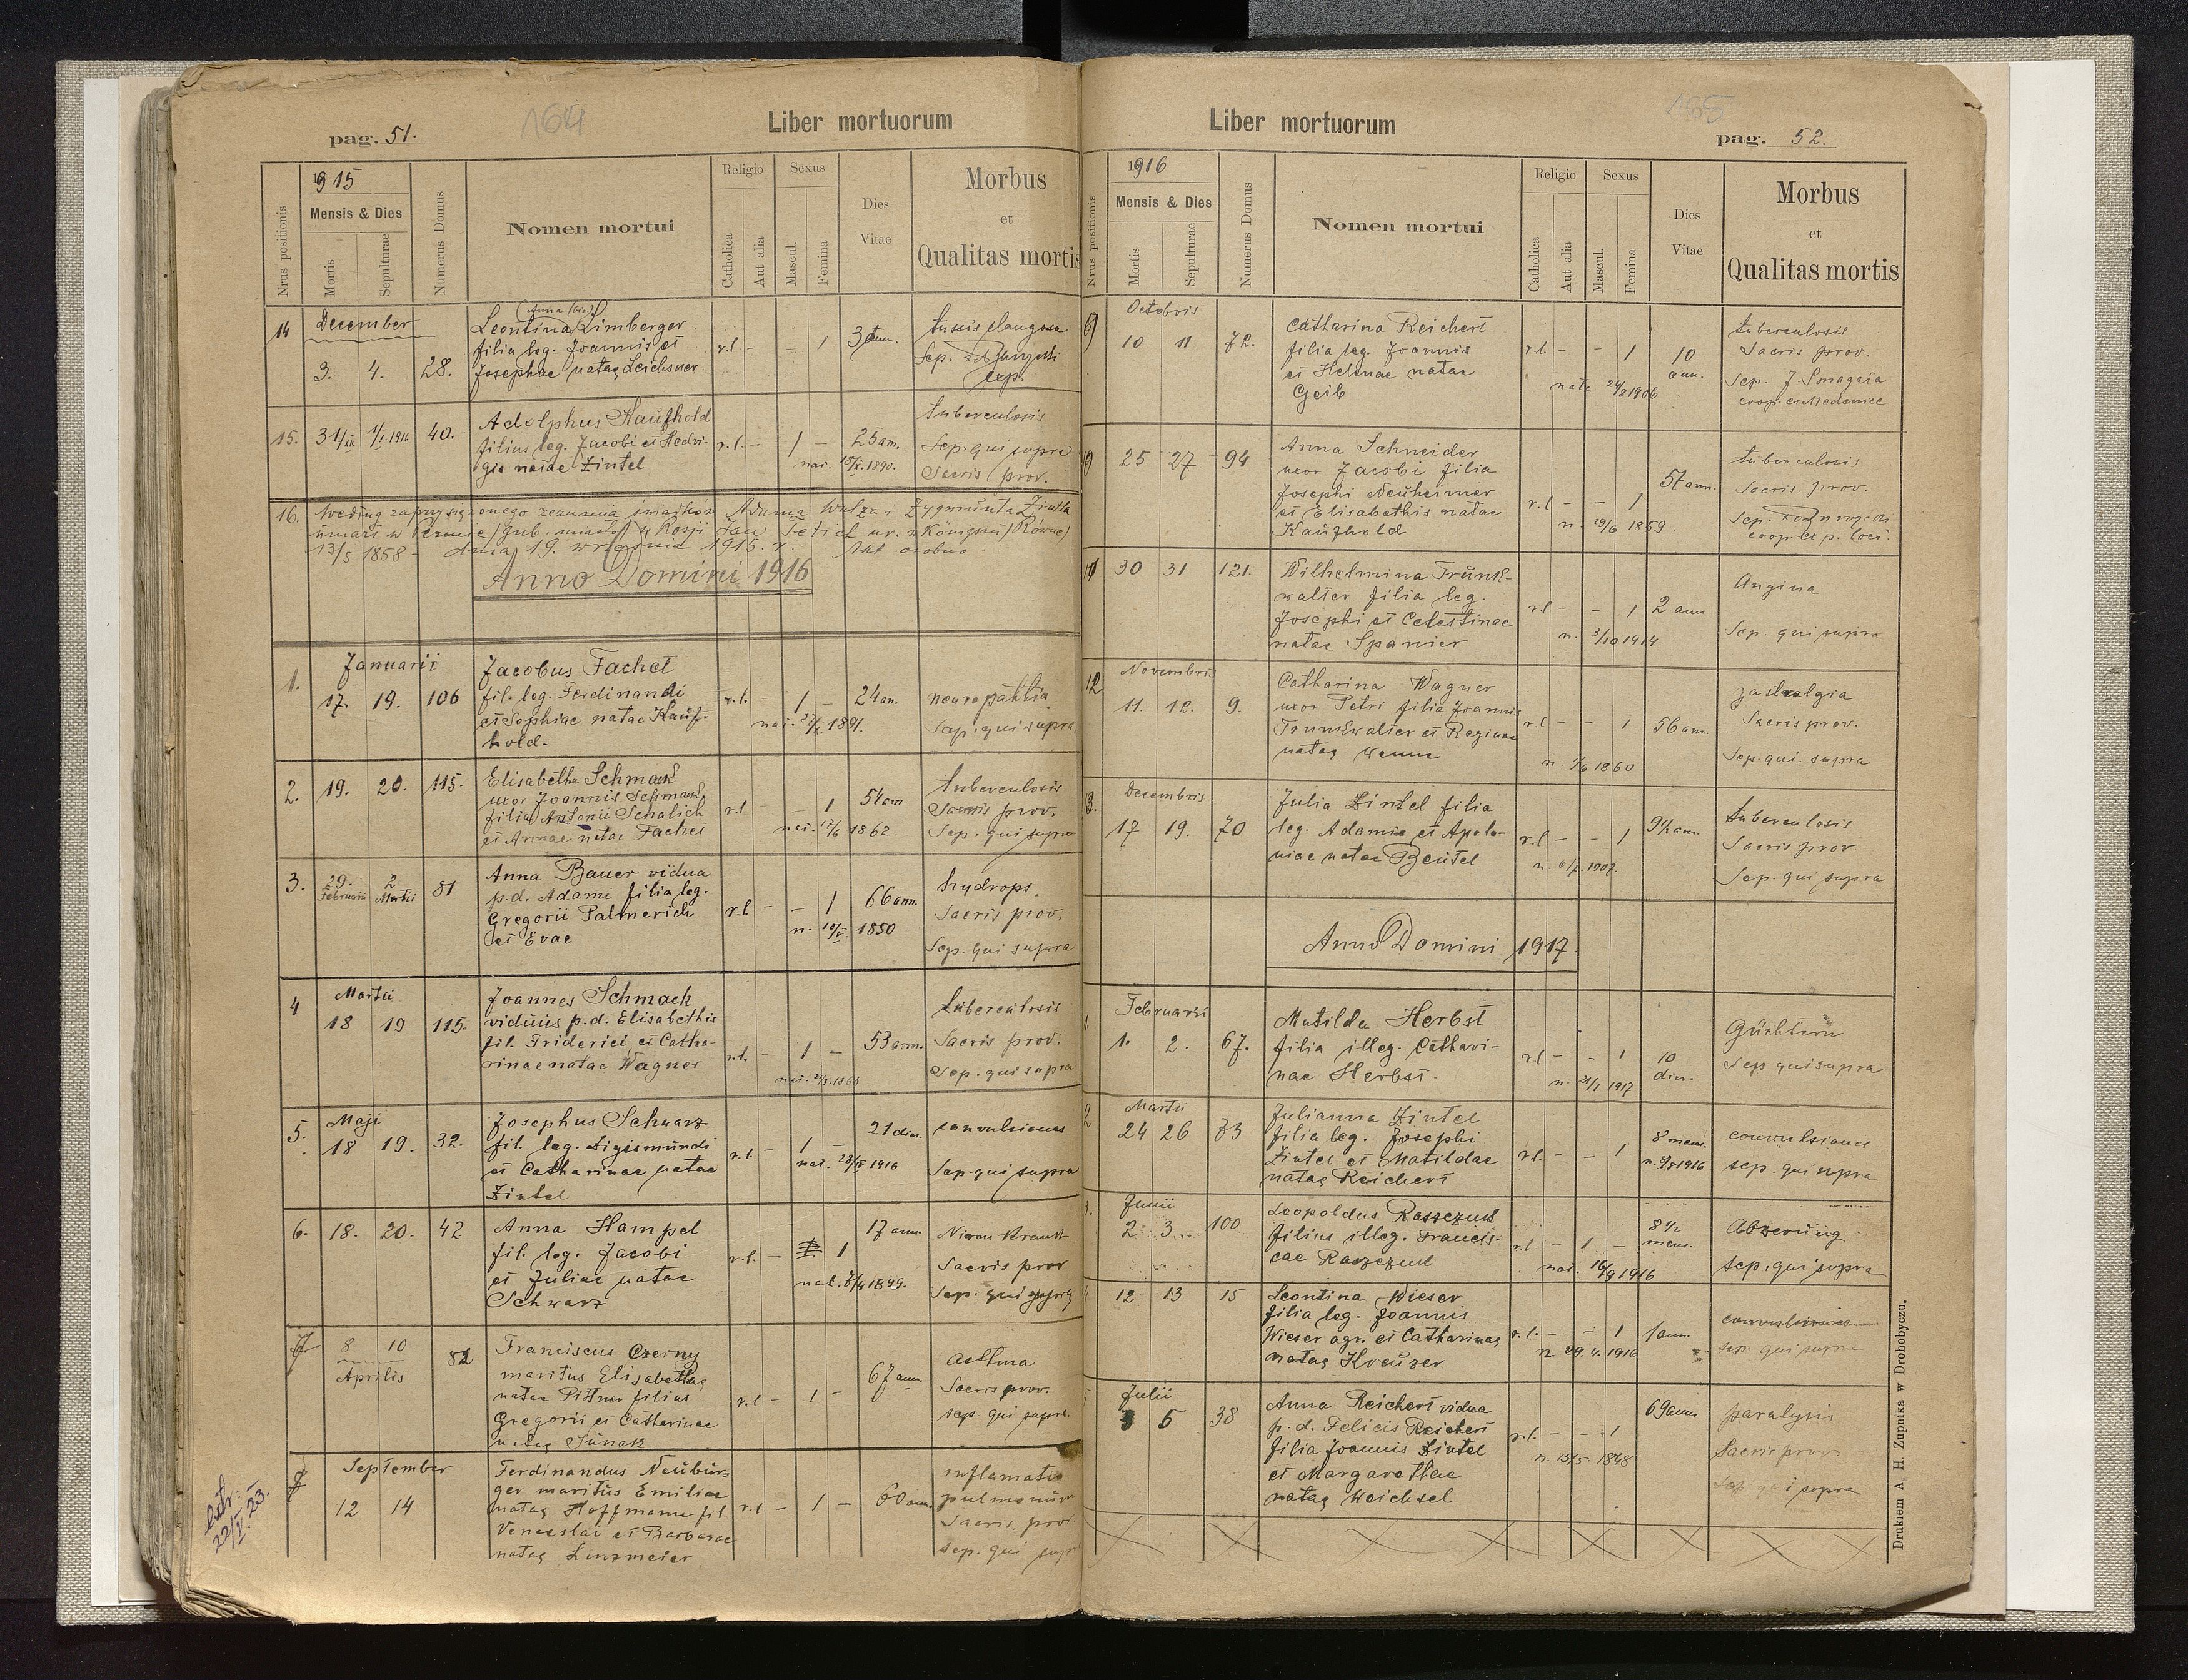 pag. 51.
164
Liber mortuorum
Nrus positionis
1915
Mensis & Dies
Mortis
Sepulturae
Numerus Domus
Nomen mortui
Religio
Catholica
Aut alia
Sexus
Mascul.
Femina
Dies
Vitae
Morbus
et
Qualitas mortis
14
December
3. 4. 28.
Anna (bis)
Leontina Limberger
filia leg. Joannis et
Josephae natae Leichsner
r.l. - - 1
3 ann.
tussis
Sep.
exp.
15. 31/XII 1/I.1916 40.
Adolphus Kaufhold
filius leg. Jacobi et Hedvi-
gis natae Zintel
r.l. - 1 -
25 an.
nat. 1890.
tuberculosis
Sep. qui supra
Sacris prov.
16. Według zaprzysiężonego zeznania świadków Adama Walza i Zygmunta Zintla
umarł w gub. miasto w Rosji Jan ur. w Königsau (Równe)
13/5 1858 - dnia 19. września 1915. r. Akt osobno.
Anno Domini 1916
1.
Januarii
17. 19. 106
Jacobus Fachet
fil. leg. Ferdinandi
et Sophiae natae Kauf-
hold.
r.l. - 1 -
24 an.
nat. 1891.
neuropathia
Sep. qui supra
2. 19. 20. 115.
Elisabetha Schmack
uxor Joannis Schmack
filia Antonii Schalich
et Annae natae Fachet
r.l. - 1
54 an.
nat. 17/6 1862.
tuberculosis
Sacris prov.
Sep. qui supra
3. 29. Februarii 2 Martii 81
Anna Bauer vidua
p.d. Adami filia leg.
Gregorii Palmerich
et Evae
r.l. - - 1
66 ann.
n. 1850
hydrops.
Sacris prov.
Sep. qui supra
4
Martii
18 19 115.
Joannes Schmack
viduus p.d. Elisabethis
fil. Friderici et Catha-
rinae natae Wagner
r.l. - 1 -
53 ann.
nat. 1863
tuberculosis
Sacris prov.
Sep. qui supra
5.
Maji
18 19. 32.
Josephus Schwarz
fil. leg. Sigismundi
et Catharinae natae
Zintel
r.l. - 1 -
21 dier.
nat. 1916
convulsiones
Sep. qui supra
6. 18. 20. 42.
Anna Hampel
fil. leg. Jacobi
et Juliae natae
Schwarz
r.l. - 1
17 ann.
nat. 1899.
Nieren krank
Sacris prov
Sep. qui supra
7
8 10
Aprilis
82
Franciscus Czerny
maritus Elisabethae
natae Pittner filius
Gregorii et Catharinae
natae
r.l. - 1 -
67 ann.
asthma
Sacris prov.
sep. qui supra.
September
12 14
Ferdinandus Neubur-
ger maritus Emiliae
natae Hoffmann fil.
Venceslai et Barbarae
natae Linzmeier
r.l. - 1 -
60 ann.
inflamatio
pulmonum
Sacris. prov.
sep. qui supra
22/I. 23.
Liber mortuorum
165
pag. 52.
Nrus positionis
1916
Mensis & Dies
Mortis
Sepulturae
Numerus Domus
Nomen mortui
Religio
Catholica
Aut alia
Sexus
Mascul.
Femina
Dies
Vitae
Morbus
et
Qualitas mortis
9
Octobris
10 11 72.
Catharina Reichert
filia leg. Joannis
et Helenae natae
Geib
r.l. - - 1
10
ann.
nata 1906
tuberculosis
Sacris prov.
Sep. J. Smagała
coop. ex Medenice
25 27 94
Anna Schneider
uxor Jacobi filia
Josephi Neuheimer
et Elisabethis natae
Kaufhold
r.l - - 1
57 ann.
n. 19/6 1859
tuberculosis
Sacris. prov.
Sep.
coop. loci.
30 31 121.
Wilhelmina Trunk-
walter filia leg.
Josephi et Celestinae
natae Spanier
r.l - - 1
2 ann
n. 3/10 1914
Angina
Sep. qui supra
12
Novembris
11. 12. 9.
Catharina Wagner
uxor Petri filia Joannis
Trunkwalter et Reginae
natae Wenne
r.l - - 1
56 an.
n. 1860
gastralgia
Sacris prov.
Sep. qui. supra
Decembris
17 19. 70
Julia Zintel filia
leg. Adami et Apolo-
niae natae Beutel
r.l - - 1
9½ an.
n. 1907.
tuberculosis
Sacris prov
Sep. qui supra
Anno Domini 1917.
Februarii
1. 2. 67.
Matilda Herbst
filia illeg. Cathari-
nae Herbst
r.l - - 1
10
dier.
n. 21/1 1917
Sep. qui supra
2
Martii
24 26 73
Julianna Zintel
filia leg. Josephi
Zintel et Matildae
natae Reichert
r.l. - - 1
8 mens.
n. 1916
convulsiones
sep. qui supra
3.
Junii
2 3 100
Leopoldus Raszczuk
filius illeg. Francis-
cae Raszczuk
r.l. - 1 -
8½
mens.
nat. 16/9 1916
Abzerung
sep. qui supra
12 13 15
Leontina Wieser
filia leg. Joannis
Wieser agr. et Catharinae
natae Kreuzer
r.l. - - 1
1 ann.
n. 29. 4. 1916
convulsiones
sep. qui supra
Julii
3 5 38
Anna Reichert vidua
p. d. Felicis Reichert
filia Joannis Zintel
et Margarethae
natae Weichsel
r.l. - - 1
69 ann
n. 15/5 1848
paralysis
Sacris prov
Sep qui supra
Drukiem A. H. Żupnika w Drohobyczu.